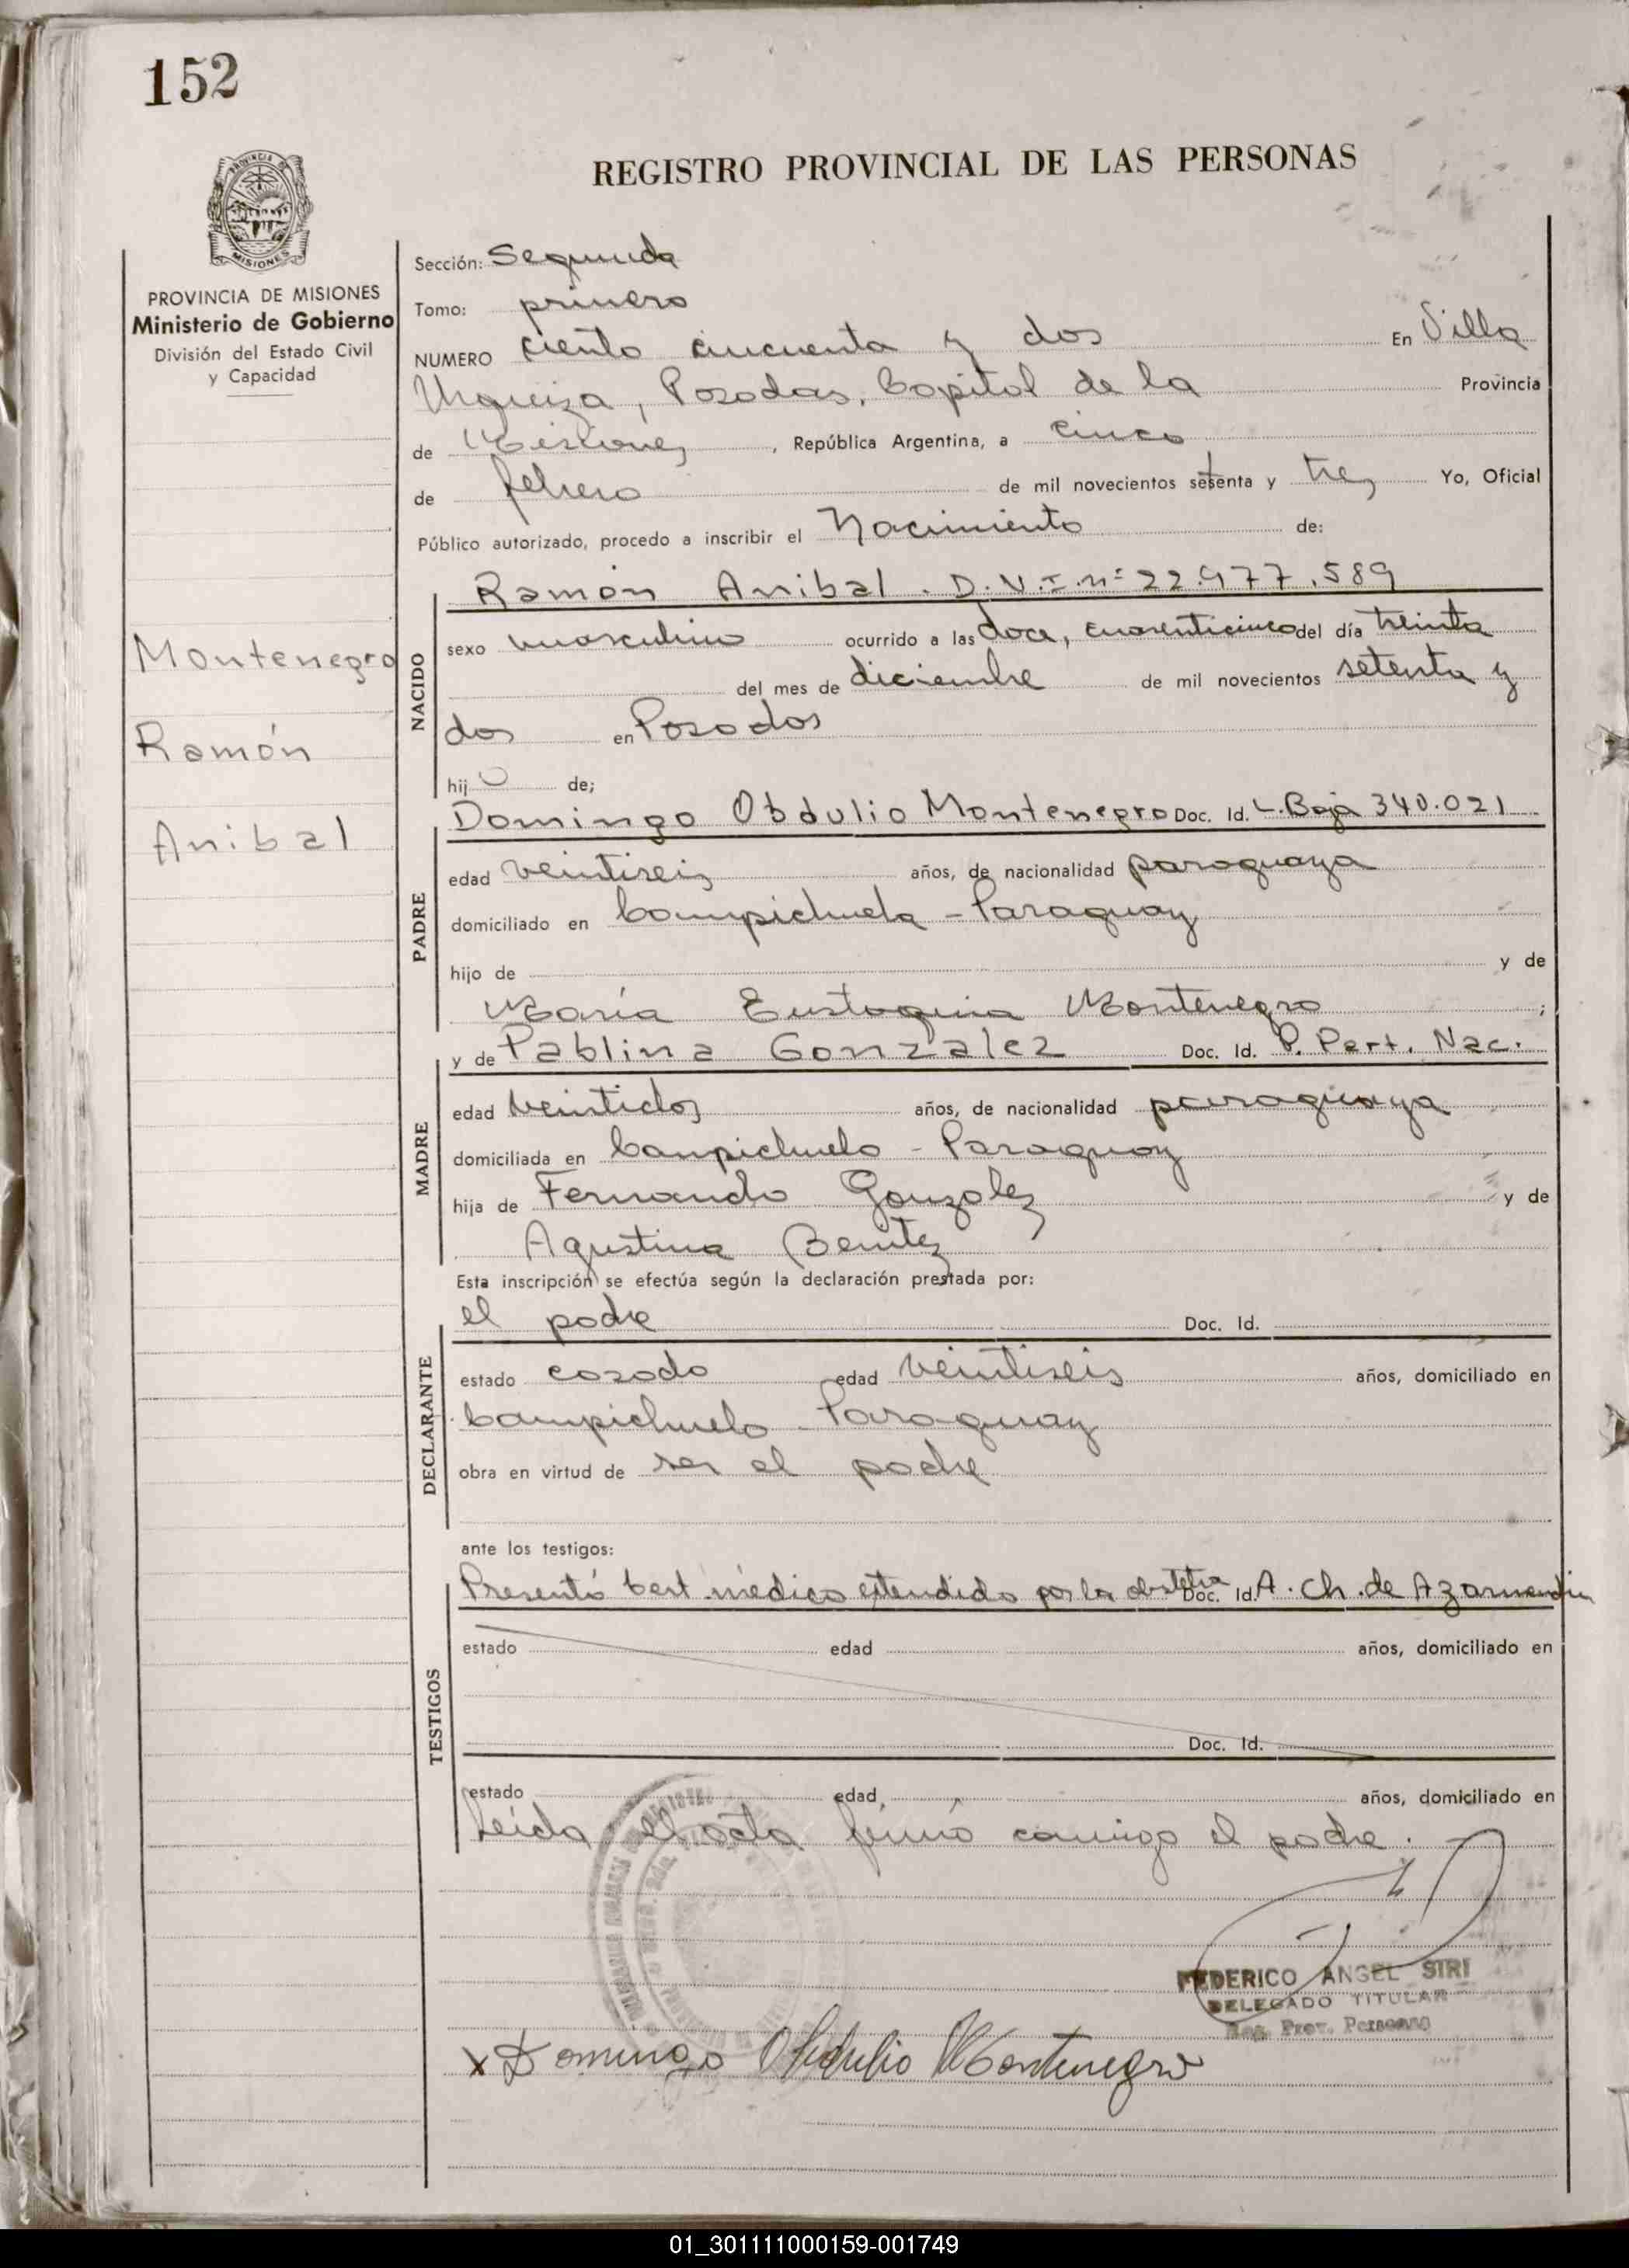 152
REGISTRO PROVINCIAL DE LAS PERSONAS
PROVINCIA DE
MISIONES
PROVINCIA DE MISIONES
Ministerio de Gobierno
División del Estado Civil
y Capacidad
Montenegro
Ramón
Anibal
Sección: Segunda
Tomo: primero
NUMERO ciento cincuenta y dos En Villa
Urquiza, Posadas, Capital de la Provincia
de Misiones, República Argentina, a cinco
de febrero de mil novecientos setenta y tres Yo, Oficial
Público autorizado, procedo a inscribir el Nacimiento de:
Ramón Anibal. D.N.I. nº 22.977.589
NACIDO
sexo masculino ocurrido a las doce, cuarenticinco del día treinta
del mes de diciembre de mil novecientos setenta y
dos en Posadas
hijo de;
Domingo Obdulio Montenegro Doc. Id. L. Baja 340.021
PADRE
edad veintiseis años, de nacionalidad paraguaya
domiciliado en Campichuelo - Paraguay
hijo de y de
María Eustaquia Montenegro ;
y de Pablina Gonzalez Doc. Id. P. Part. Nac.
MADRE
edad veintidos años, de nacionalidad paraguaya
domiciliada en Campichuelo - Paraguay
hija de Fernando Gonzalez y de
Agustina Benitez
Esta inscripción se efectúa según la declaración prestada por:
el padre Doc. Id.
DECLARANTE
estado casado edad veintiseis años, domiciliado en
Campichuelo - Paraguay
obra en virtud de ser el padre
ante los testigos:
Presentó Cert. médico extendido por la obstetra Doc. Id. A. Ch. de Azarmendia
TESTIGOS
estado edad años, domiciliado en
Doc. Id.
estado edad años, domiciliado en
Leída el acta firmó conmigo el padre.
FEDERICO ANGEL SIRI
DELEGADO TITULAR
Reg. Prov. Personas
x Domingo Obdulio Montenegro
01_301111000159-001749